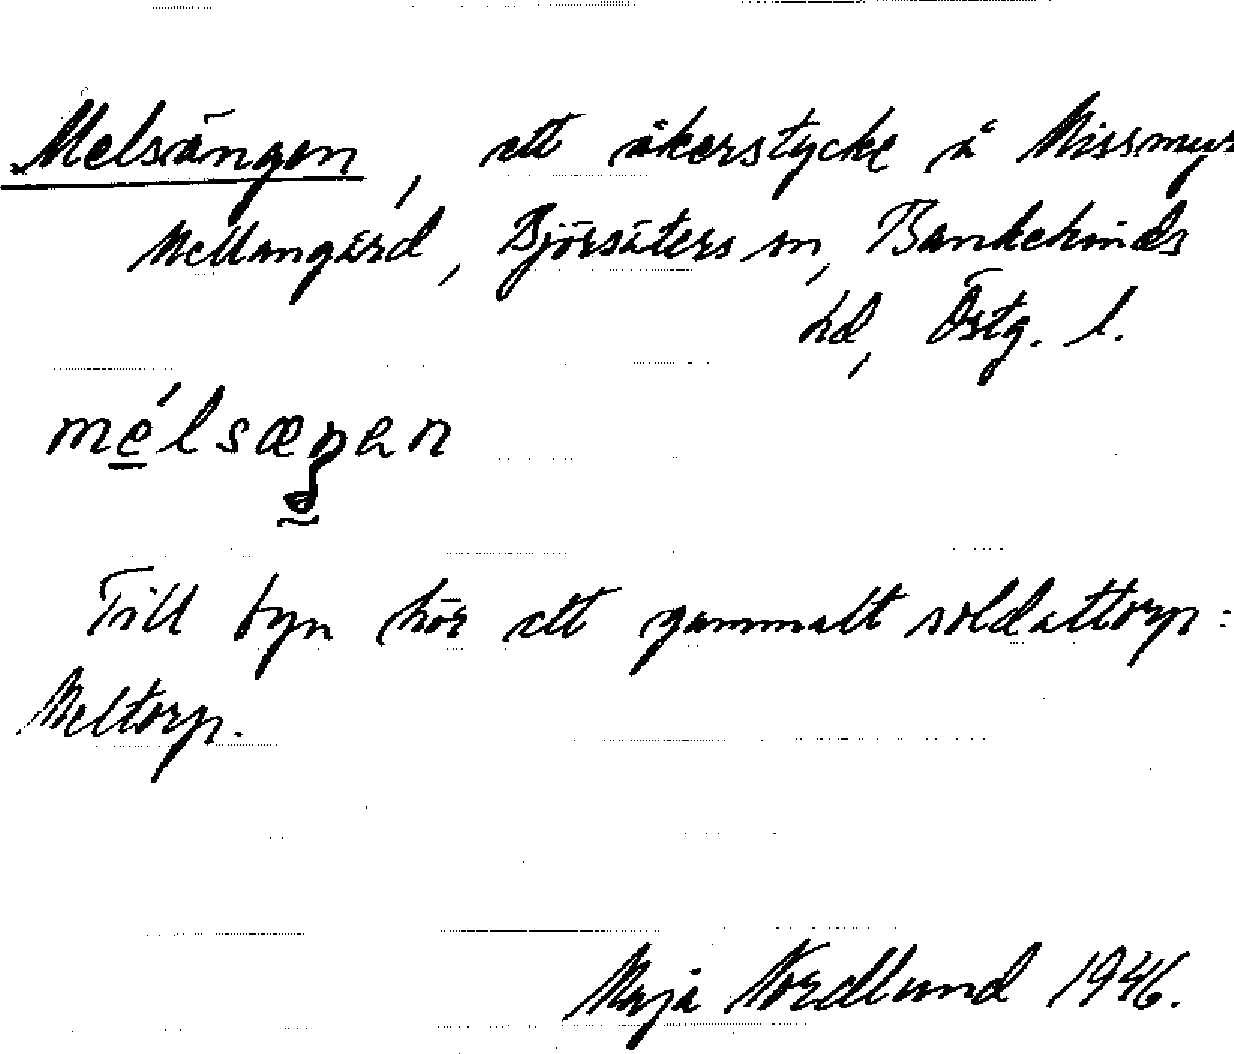 Melsängen, ett åkerstycke å Missmyr
Mellangård, Björsäters sn, Bankekinds
hd, Östg. l.
mélsæŋen
Till byn hör ett gammalt soldattorp:
Meltorp.
Maja Nordlund 1946.